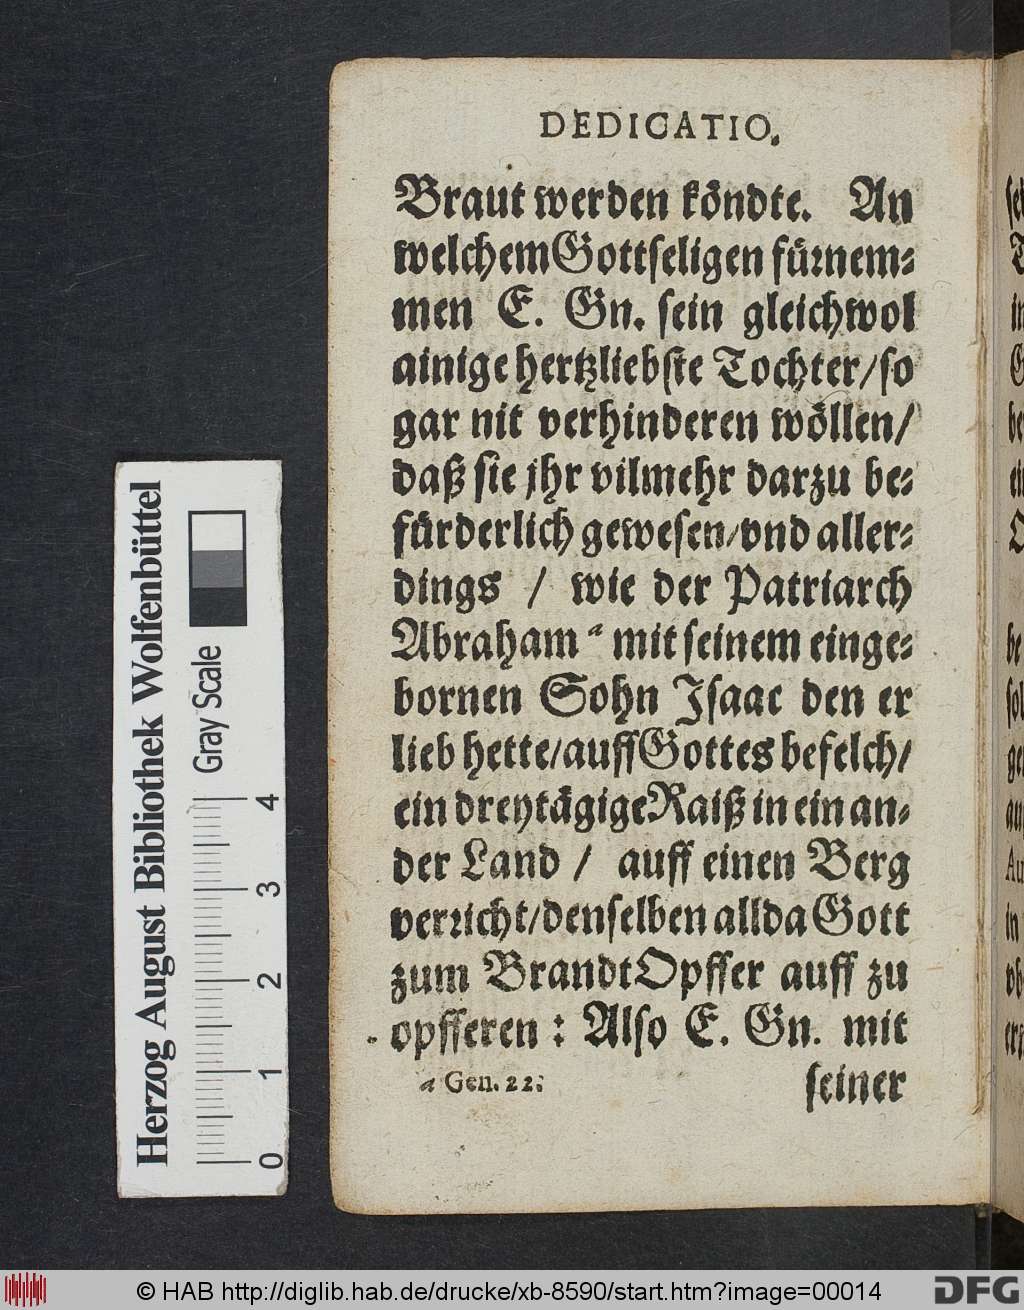 DEDICATIO.
Braut werden köndte. An
welchem Gottseligen fürnem-
men E. Gn. sein gleichwol
ainige hertzliebste Tochter/so
gar nit verhinderen wöllen/
daß sie jhr vilmehr darzu be-
fürderlich gewesen/vnd aller-
dings / wie der Patriarch
Abraham a mit seinem einge-
bornen Sohn Isaac den er
lieb hette/auff Gottes befelch/
ein dreytägige Raiß in ein an-
der Land / auff einen Berg
verricht/denselben allda Gott
zum BrandtOpffer auff zu
opfferen : Also E. Gn. mit
a Gen. 22.
seiner
Herzog August Bibliothek Wolfenbüttel
Gray Scale
0 1 2 3 4
© HAB http://diglib.hab.de/drucke/xb-8590/start.htm?image=00014
DFG